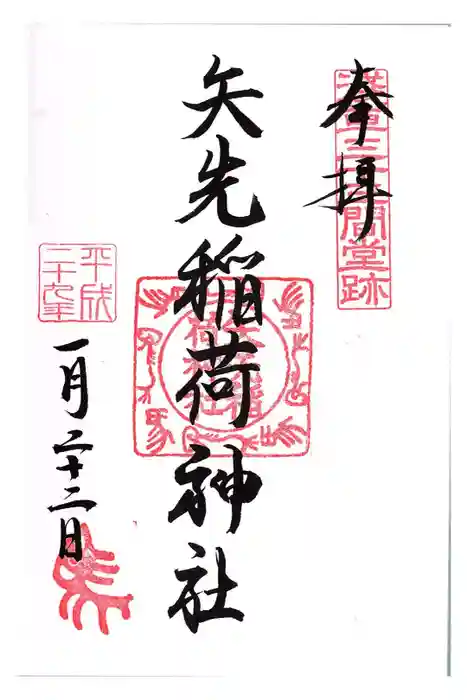 奉拝
浅草三十三間堂跡
矢先稲荷神社
平成
二十九年
一月二十二日